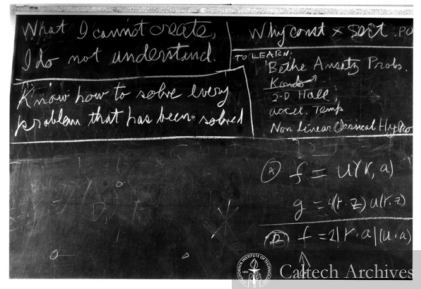 What I cannot create,
I do not understand.
Know how to solve every
problem that has been solved
Why const × sort . po
TO LEARN:
Bethe Ansatz Probs.
Kondo
2-D Hall
accel. Temp
Non Linear Classical Hydro
f = u(r, a)
g = 4(r, z) u(r, z)
f = 2|r.a|(u.a)
Caltech Archives